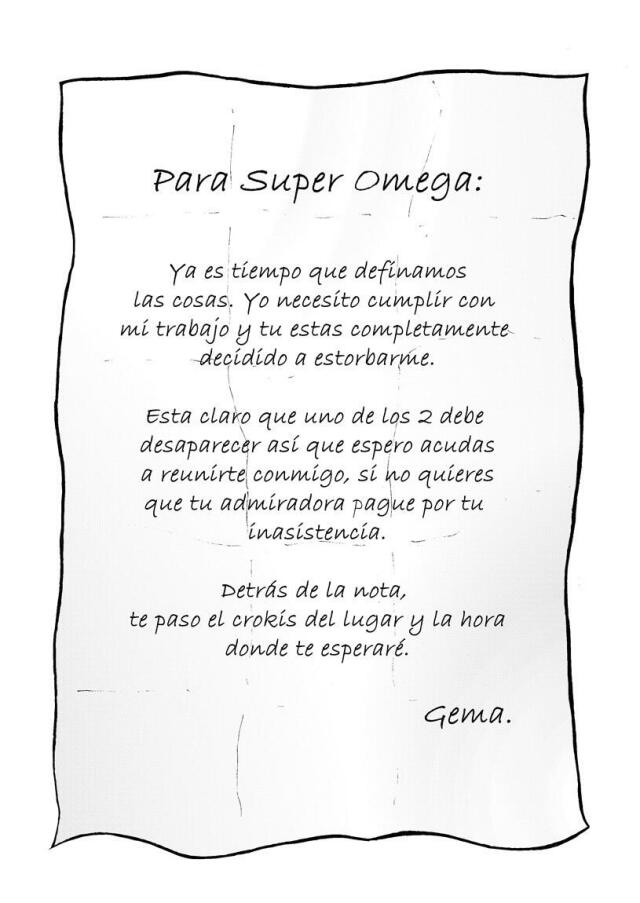 Para Super Omega:
Ya es tiempo que definamos
las cosas. Yo necesito cumplir con
mi trabajo y tu estas completamente
decidido a estorbarme.
Esta claro que uno de los 2 debe
desaparecer así que espero acudas
a reunirte conmigo, si no quieres
que tu admiradora pague por tu
inasistencia.
Detrás de la nota,
te paso el crokis del lugar y la hora
donde te esperaré.
Gema.